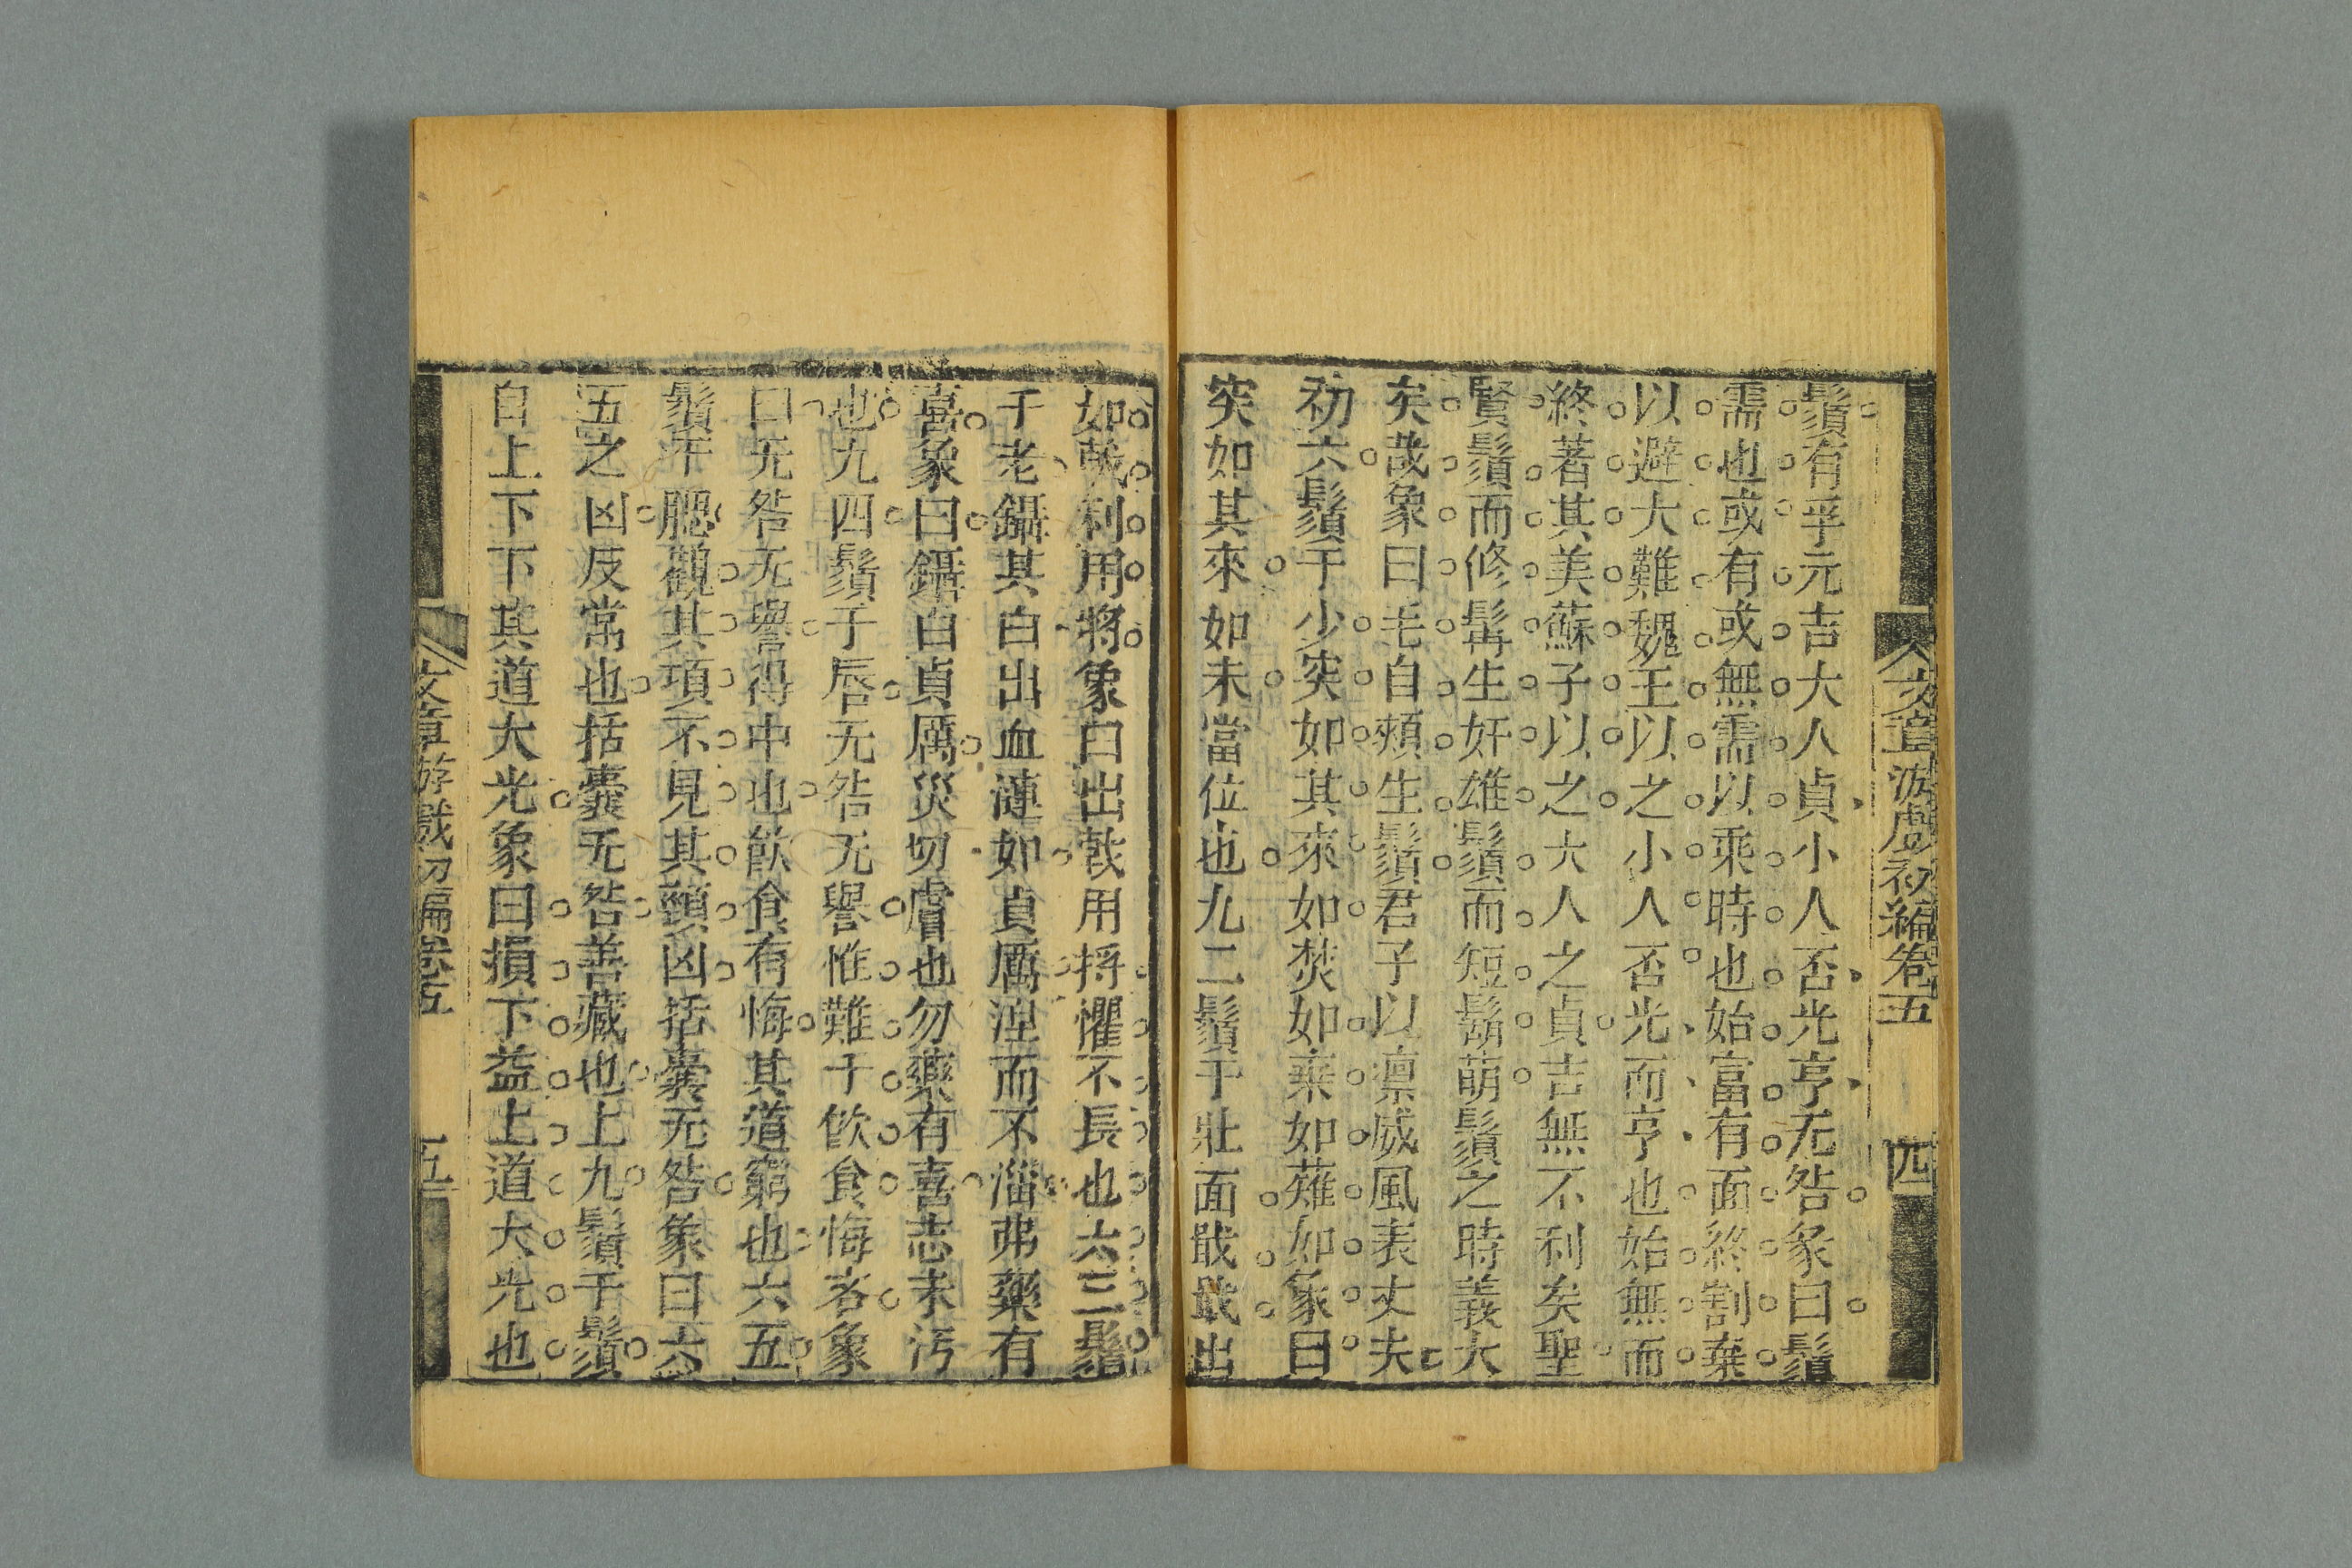 文章游戲初編卷五 四
鬚有孚元吉大人貞小人否光亨无咎彖曰鬚
需也或有或無需以乘時也始富有面終割棄
以避大難魏王以之小人否光而亨也始無而
終著其美蘇子以之大人之貞吉無不利矣聖
賢鬚而修髯生奸雄鬚而短鬍萌鬚之時義大
矣哉象曰毛自頰生鬚君子以凛威風表丈夫
初六鬚于少突如其來如焚如棄如薙如象曰
突如其來如未當位也九二鬚于壯面戢戢出
如戟利用將象曰出戟用捋懼不長也六三鬚
于老鑷其白出血漣如貞厲涅而不淄弗藥有
喜象曰鑷白貞厲災切膚也勿藥有喜志未汚
也九四鬚于唇无咎无譽惟難于飲食悔吝象
曰无咎无譽得中也飲食有悔其道窮也六五
鬚于腮觀其項不見其頸凶括囊无咎象曰六
五之凶反常也括囊无咎善藏也上九鬚于鬚
自上下下其道大光象曰損下益上道大光也
文章游戲初編卷五 五